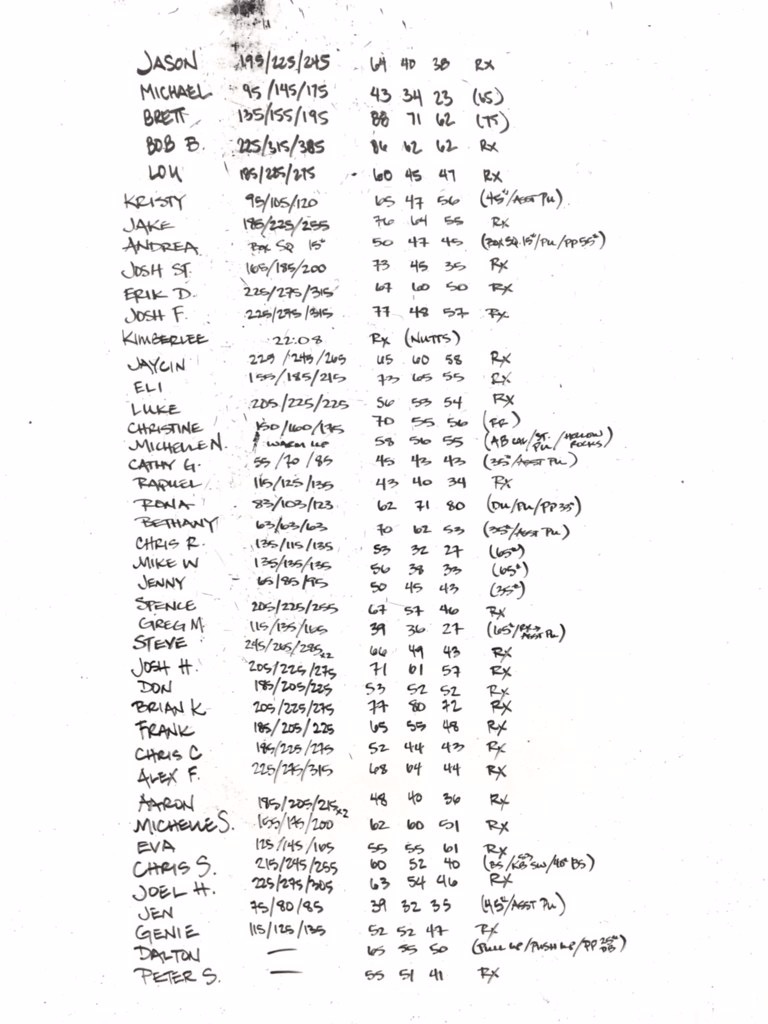 JASON 195/225/245 64 40 38 Rx
MICHAEL 95/145/175 43 34 23 (65)
BRETT 135/155/195 88 71 62 (75)
BOB B. 225/315/385 86 62 62 Rx
LOU 185/225/275 60 45 47 Rx
KRISTY 95/105/120 65 47 56 (45#/ASST PU)
JAKE 185/225/255 76 64 55 Rx
ANDREA BOX SQ 15# 50 47 45 (BOX SQ 15#/PU/PP55#)
JOSH ST. 165/185/200 73 45 35 Rx
ERIK D. 225/275/315 67 60 50 Rx
JOSH F. 225/295/315 77 48 57 Rx
KIMBERLEE 22:08 Rx (NUTTS)
JAYCIN 225/245/265 65 60 58 Rx
ELI 155/185/215 73 65 55 Rx
LUKE 205/225/225 56 53 54 Rx
CHRISTINE 150/160/175 70 55 56 (RR)
MICHELLE N. WARM UP 58 56 55 (AB /ST. PU/HOLLOW ROCKS)
CATHY G. 55/70/85 45 43 43 (35#/ASST PU)
RAQUEL 115/125/135 43 40 34 Rx
RONA 83/103/123 62 71 80 (DU/PU/PP35)
BETHANY 63/63/63 70 62 53 (35#/ASST PU)
CHRIS R. 135/115/135 53 32 27 (65#)
MIKE W 135/135/135 56 38 33 (65#)
JENNY 65/85/95 50 45 43 (35#)
SPENCE 205/225/255 67 57 46 Rx
GREG M. 115/135/165 39 36 27 (65#/RX→ ASST PU)
STEVE 245/265/285x2 66 49 43 Rx
JOSH H. 205/225/275 71 61 57 Rx
DON 185/205/225 53 52 52 Rx
BRIAN K 205/225/275 77 80 72 Rx
FRANK 185/205/225 65 55 48 Rx
CHRIS C 185/225/275 52 44 43 Rx
ALEX F. 225/275/315 68 64 44 Rx
AARON 185/205/215x2 48 40 36 Rx
MICHELLE S. 155/175/200 62 60 51 Rx
EVA 125/145/165 55 55 61 Rx
CHRIS S. 215/245/255 60 52 40 (BS/KB SW 53/45# BS)
JOEL H. 225/275/305 63 54 46 Rx
JEN 75/80/85 39 32 35 (45#/ASST PU)
GENIE 115/125/135 52 52 47 Rx
DALTON — 65 55 50 (PULL UP/PUSH UP/PP 25# DB)
PETER S. — 55 51 41 Rx